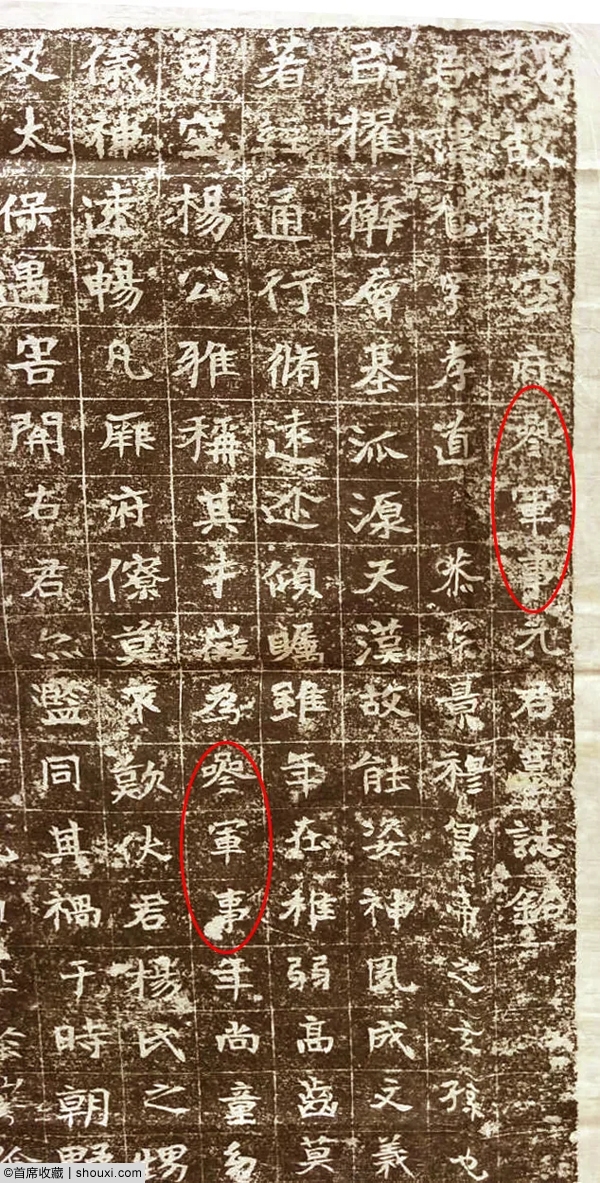 魏故司空府參軍事元君墓誌銘
君諱字孝道恭宗景穆皇帝之玄孫也
擢榦層基派源天漢故能姿神夙成文義
著經通行脩遠迩傾矚雖年在稚弱高齒莫
司空楊公雅稱其才徵為參軍事年尚童
儀神速暢凡厥府僚莫不歎伏君楊氏之甥
及太保遇害關右君亦濫同其禍于時朝野
©首席收藏 | shouxi.com